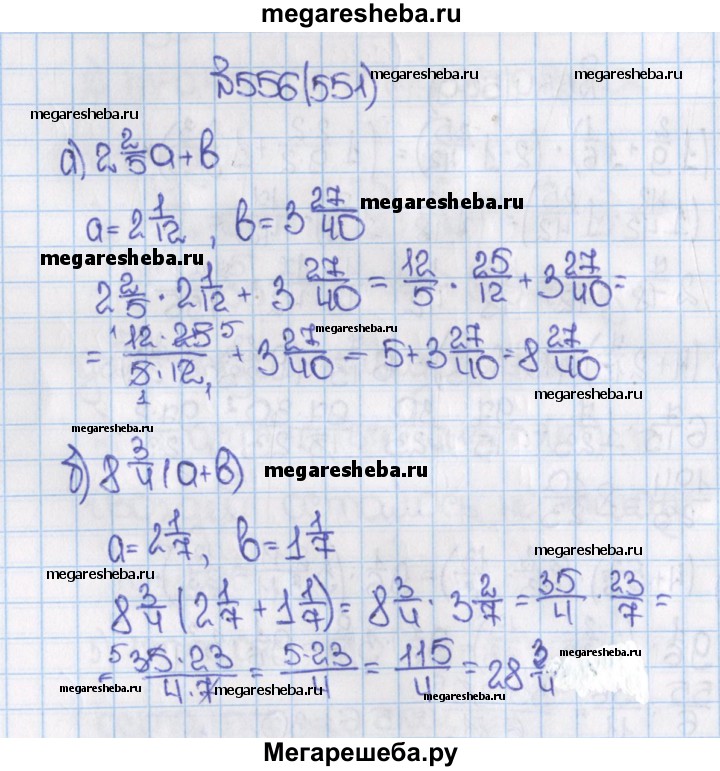 megaresheba.ru
№556(551) megaresheba.ru
megaresheba.ru
а) 2 2/5 a + b
a = 2 1/12, b = 3 27/40 megaresheba.ru
megaresheba.ru
2 2/5 · 2 1/12 + 3 27/40 = 12/5 · 25/12 + 3 27/40 =
megaresheba.ru
= (12 · 25)/(5 · 12) + 3 27/40 = 5 + 3 27/40 = 8 27/40
1 5 1 1
megaresheba.ru
megaresheba.ru
б) 8 3/4 (a + b) megaresheba.ru
a = 2 1/7, b = 1 1/7
megaresheba.ru
megaresheba.ru
8 3/4 (2 1/7 + 1 1/7) = 8 3/4 · 3 2/7 = 35/4 · 23/7 =
= 5 (35 · 23)/(4 · 7) = (5 · 23)/4 = 115/4 = 28 3/4
megaresheba.ru
megaresheba.ru megaresheba.ru megaresheba.ru
Мегарешеба.ру